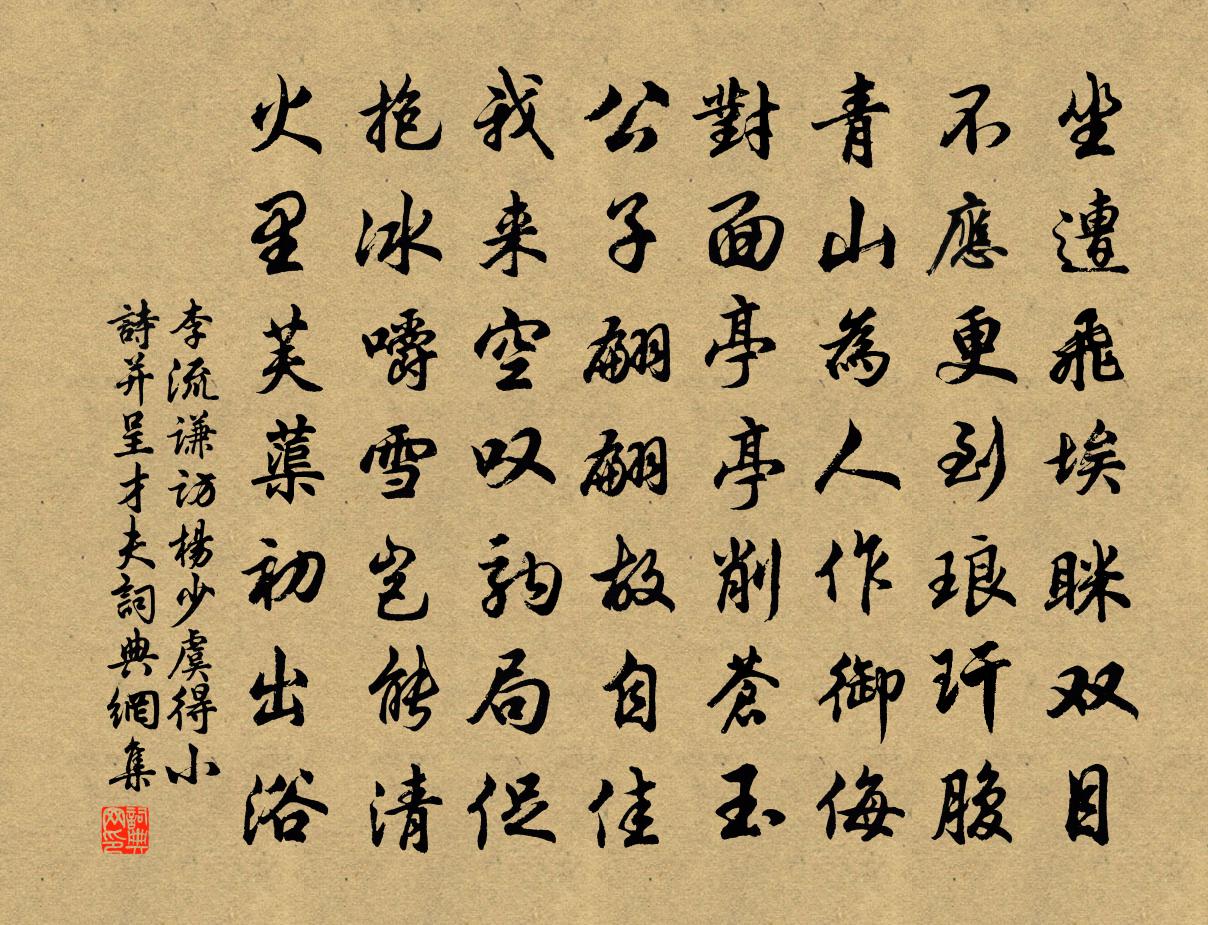 坐遭飛埃眯双目
不應更到琅玕腹
青山為人作御侮
對面亭亭削蒼玉
公子翩翩故自佳
我来空叹駒局促
抱冰嚼雪岂能清
火里芙蕖初出浴
李流谦访楊少虞得小
詩并呈才夫詞典網集
詞典网印